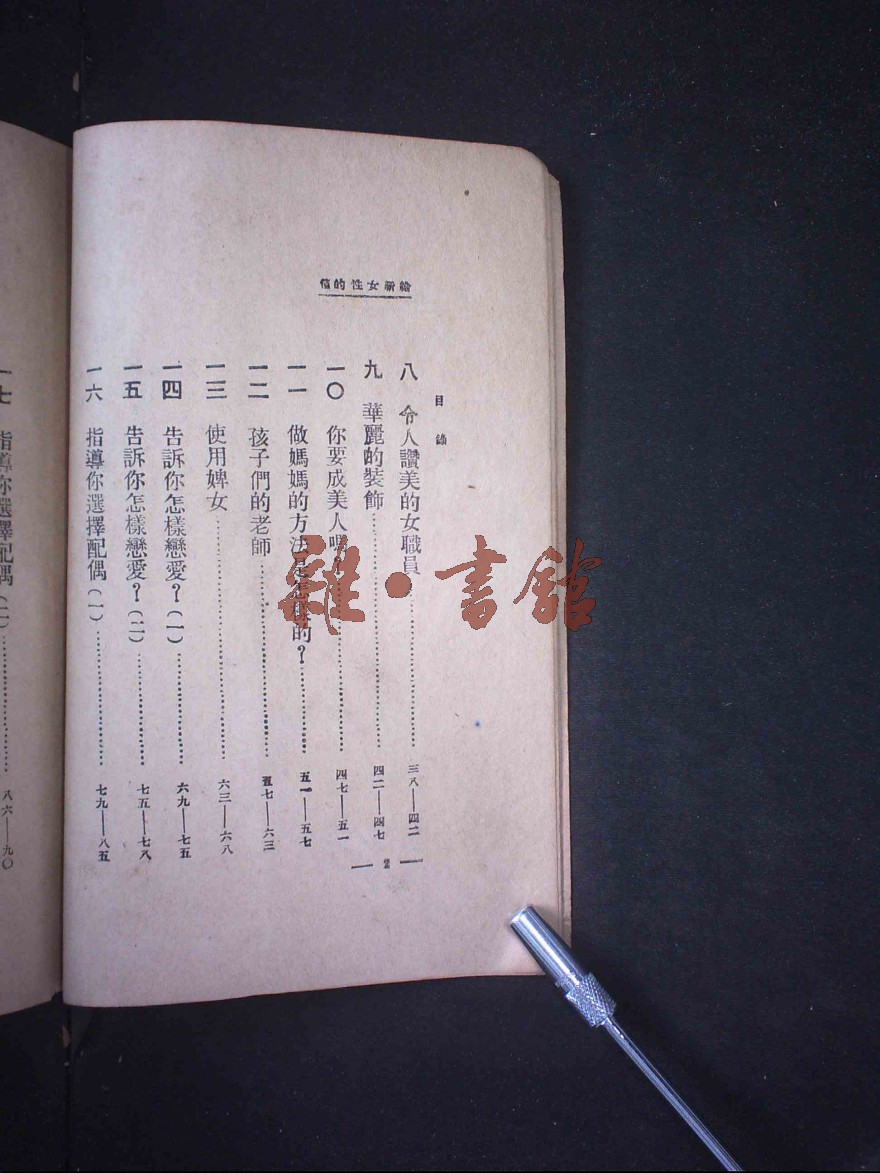 給新女性的信
目錄
八 令人讚美的女職員……三八——四二
九 華麗的裝飾……四二——四七
一〇 你要成美人嗎？……四七——五一
一一 做媽媽的方法是怎樣的？……五一——五七
一二 孩子們的老師……五七——六三
一三 使用婢女……六三——六八
一四 告訴你怎樣戀愛？（一）……六九——七五
一五 告訴你怎樣戀愛？（二）……七五——七八
一六 指導你選擇配偶（一）……七九——八五
一七 指導你選擇配偶（二）……八六——九〇
雜·書館